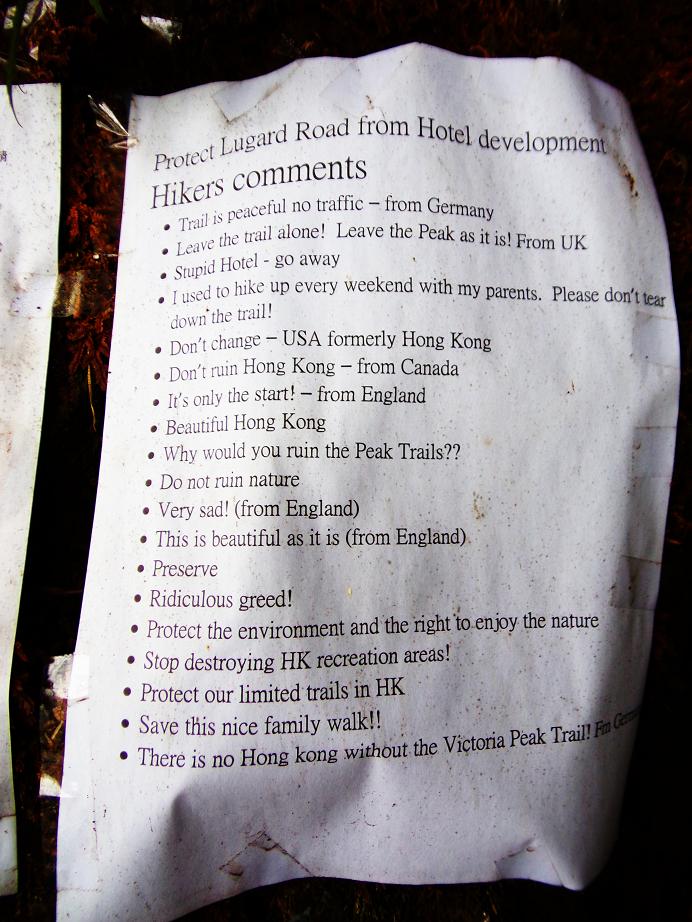 Protect Lugard Road from Hotel development
Hikers comments
• Trail is peaceful no traffic – from Germany
• Leave the trail alone! Leave the Peak as it is! From UK
• Stupid Hotel - go away
• I used to hike up every weekend with my parents. Please don't tear
down the trail!
• Don't change – USA formerly Hong Kong
• Don't ruin Hong Kong – from Canada
• It's only the start! – from England
• Beautiful Hong Kong
• Why would you ruin the Peak Trails??
• Do not ruin nature
• Very sad! (from England)
• This is beautiful as it is (from England)
• Preserve
• Ridiculous greed!
• Protect the environment and the right to enjoy the nature
• Stop destroying HK recreation areas!
• Protect our limited trails in HK
• Save this nice family walk!!
• There is no Hong kong without the Victoria Peak Trail! Fm